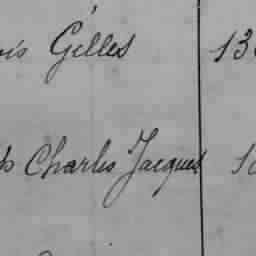 Gilles 13
Charles Jacques 1